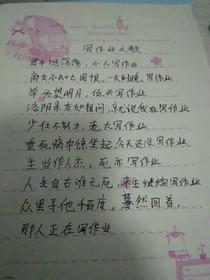 写作业之歌
君子坦荡荡，小人写作业
商女不知亡国恨，一天到晚写作业
举头望明月，低头写作业
洛阳亲友如相问，就说我在写作业
少壮不努力，老大写作业
垂死病中惊坐起，今天还没写作业
生当作人杰，死亦写作业
人生自古谁无死，来生继续写作业
众里寻他千百度，蓦然回首，
那人正在写作业